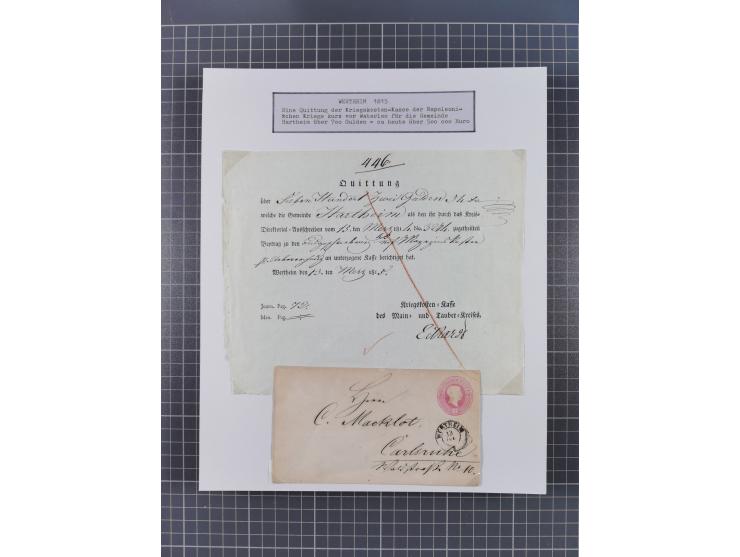 WERTHEIM 1815
Eine Quittung der Kriegskosten-Kasse der Napoleoni-
schen Kriege kurz vor Waterloo für die Gemeinde
Hartheim über 700 Gulden - ca heute über 500 000 Euro
446
Quittung
über Sieben Hundert Zwei Gulden
welche die Gemeinde Hartheim als den ihr durch das Kreis-
Direktorial-Ausschreiben vom 13. ten Merz 181 No. zugetheilten
Beytrag zu den
an unterzogene Kasse berichtiget hat.
Wertheim den 13. ten Merz 181
Journ. Pag.
Man. Pag.
Kriegskosten-Kasse
des Main- und Tauber-Kreises,
Herrn
C. Macklot,
WERTHEIM
Carlsruhe
Waldstraße No. 10.